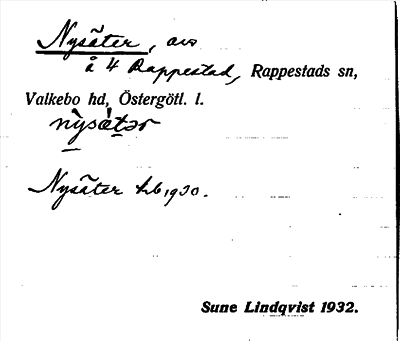 Nysäter, avs
å 4 Rappestad, Rappestads sn,
Valkebo hd, Östergötl. l.
nysätər
Nysäter hb 1930.
Sune Lindqvist 1932.